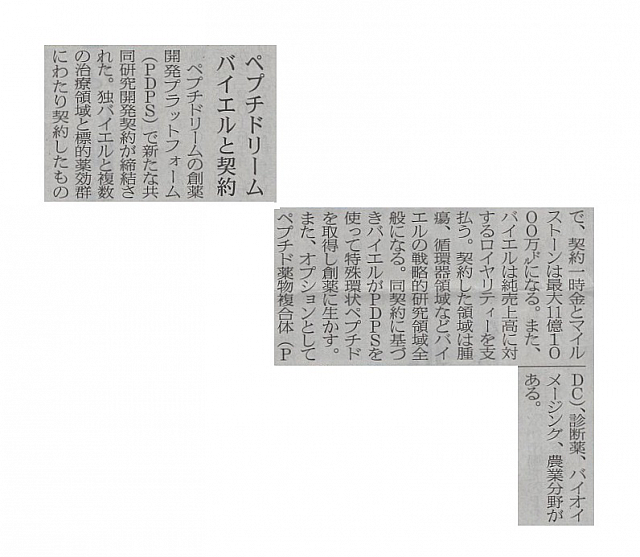 ペプチドリーム
バイエルと契約
ペプチドリームの創薬
開発プラットフォーム
(PDPS)で新たな共
同研究開発契約が締結さ
れた。独バイエルと複数
の治療領域と標的薬効群
にわたり契約したもの
で、契約一時金とマイル
ストーンは最大11億10
00万㌦になる。また、
バイエルは純売上高に対
するロイヤリティーを支
払う。契約した領域は腫
瘍、循環器領域などバイ
エルの戦略的研究領域全
般になる。同契約に基づ
きバイエルがPDPSを
使って特殊環状ペプチド
を取得し創薬に生かす。
また、オプションとして
ペプチド薬物複合体(P
DC)、診断薬、バイオイ
メージング、農業分野が
ある。